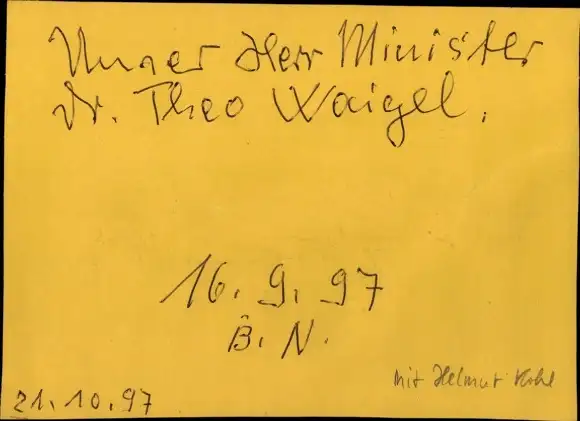 Unser Herr Minister
Dr. Theo Waigel.
16. 9. 97
B. N.
mit Helmut Kohl
21. 10. 97